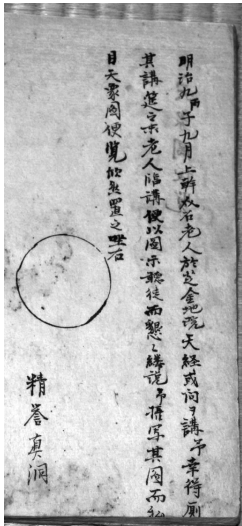 明治九丙子九月上澣双石老人於芝金地院天経或問ヲ講予幸得厠
其講筵之末老人臨講便以図示聴徒而懇々縷説予描写其図而私
目天象図便覧並置之坐右
精誉真洞